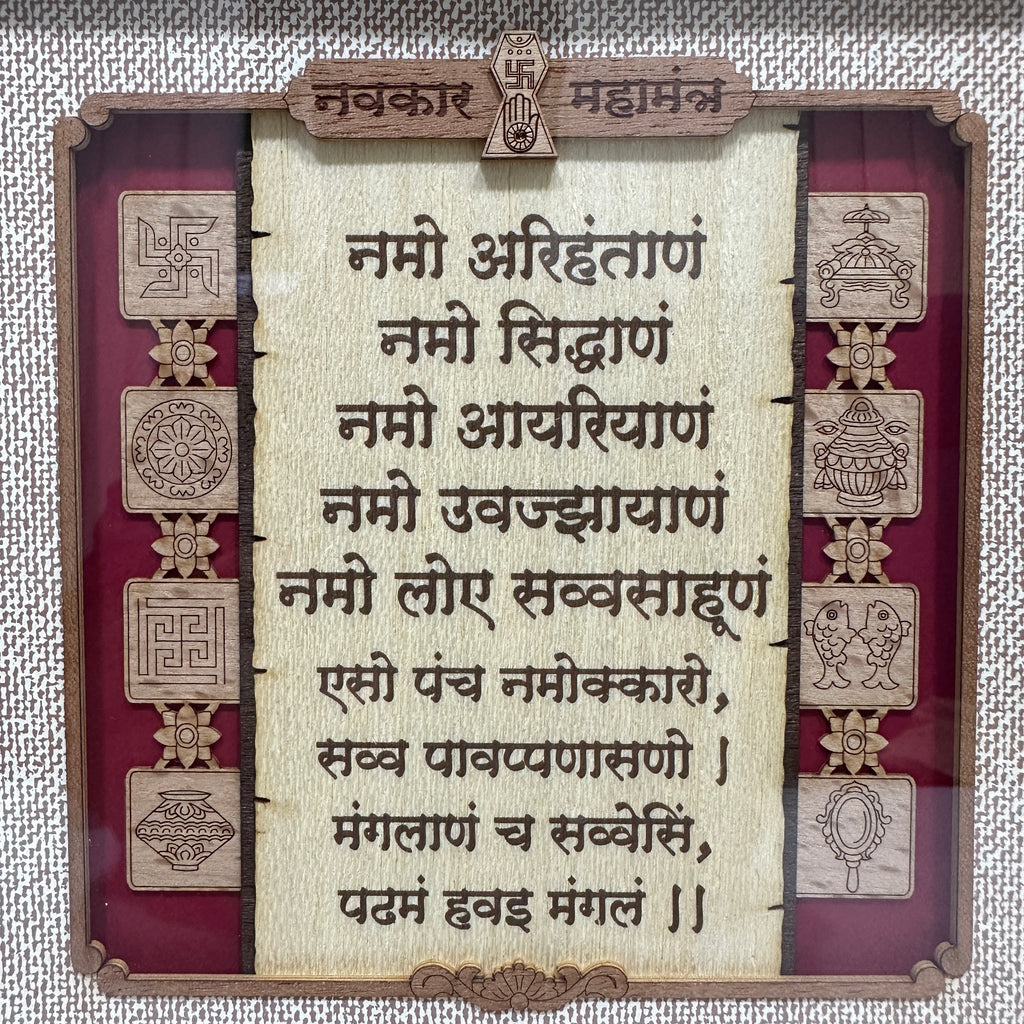 नवकार महामंत्र
नमो अरिहंताणं
नमो सिद्धाणं
नमो आयरियाणं
नमो उवज्झायाणं
नमो लोए सव्वसाहूणं
एसो पंच नमोक्कारो,
सव्व पावप्पणासणो |
मंगलाणं च सव्वेसिं,
पढमं हवइ मंगलं ||